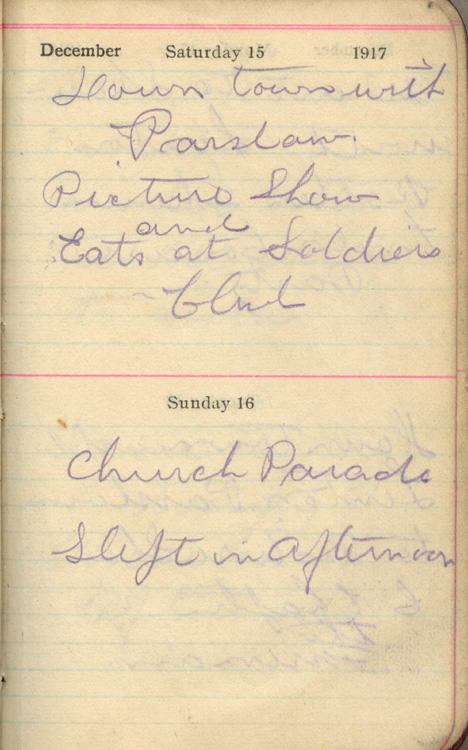 December Saturday 15 1917
Down town with
Parslow.
Picture Show
and
Eats at Soldiers
Club
Sunday 16
Church Parade
Slept in Afternoon